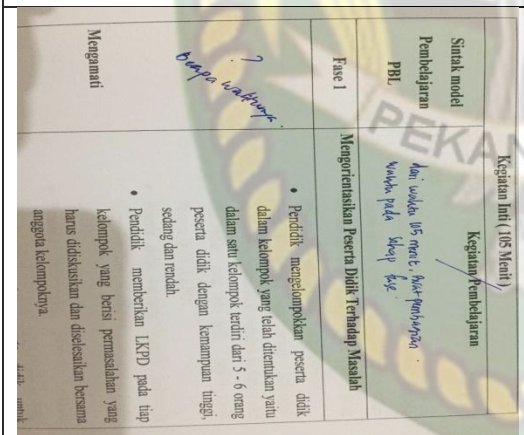 Kegiatan Inti ( 105 Menit )
Sintak model
Pembelajaran
PBL
Kegiatan Pembelajaran
dari waktu 105 menit, buat pembagian
waktu pada setiap fase.
Fase 1
Mengorientasikan Peserta Didik Terhadap Masalah
?
Berapa waktunya.
Mengamati
• Pendidik mengelompokkan peserta didik
dalam kelompok yang telah ditentukan yaitu
dalam satu kelompok terdiri dari 5 - 6 orang
peserta didik dengan kemampuan tinggi,
sedang dan rendah.
• Pendidik memberikan LKPD pada tiap
kelompok yang berisi permasalahan yang
harus didiskusikan dan diselesaikan bersama
anggota kelompoknya.
untuk
PEKAN